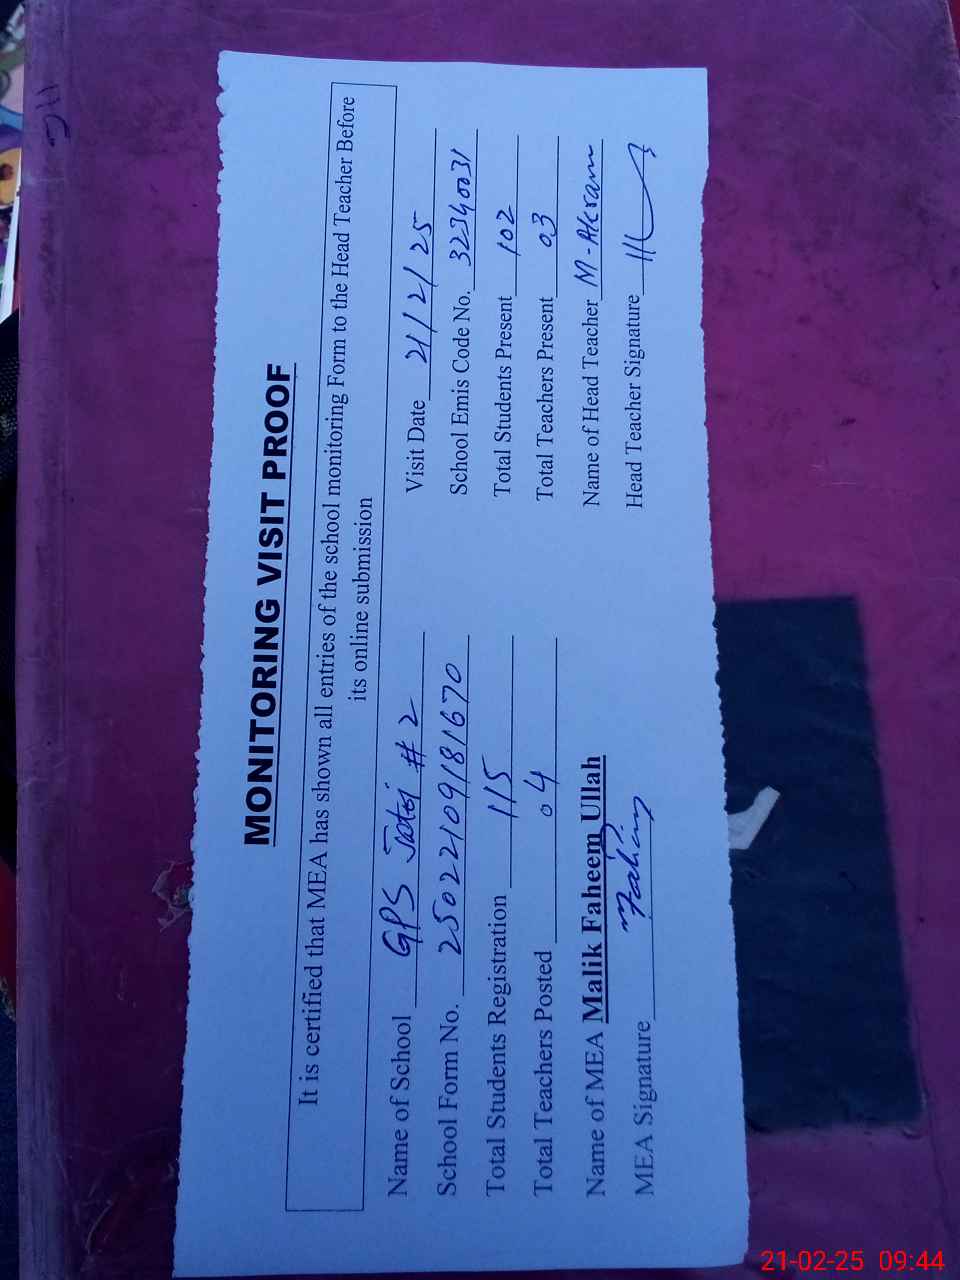 MONITORING VISIT PROOF
It is certified that MEA has shown all entries of the school monitoring Form to the Head Teacher Before
its online submission
Name of School GPS Jatoi # 2 Visit Date 21/2/25
School Form No. 25022109181670 School Emis Code No. 32340031
Total Students Registration 115 Total Students Present 102
Total Teachers Posted 04 Total Teachers Present 03
Name of MEA Malik Faheem Ullah Name of Head Teacher M-Akram
MEA Signature Fahim Head Teacher Signature
21-02-25 09:44